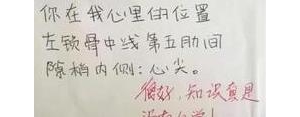 你在我心里的位置
左锁骨中线第五肋间
隙稍内侧：心尖。
很好，知识真是